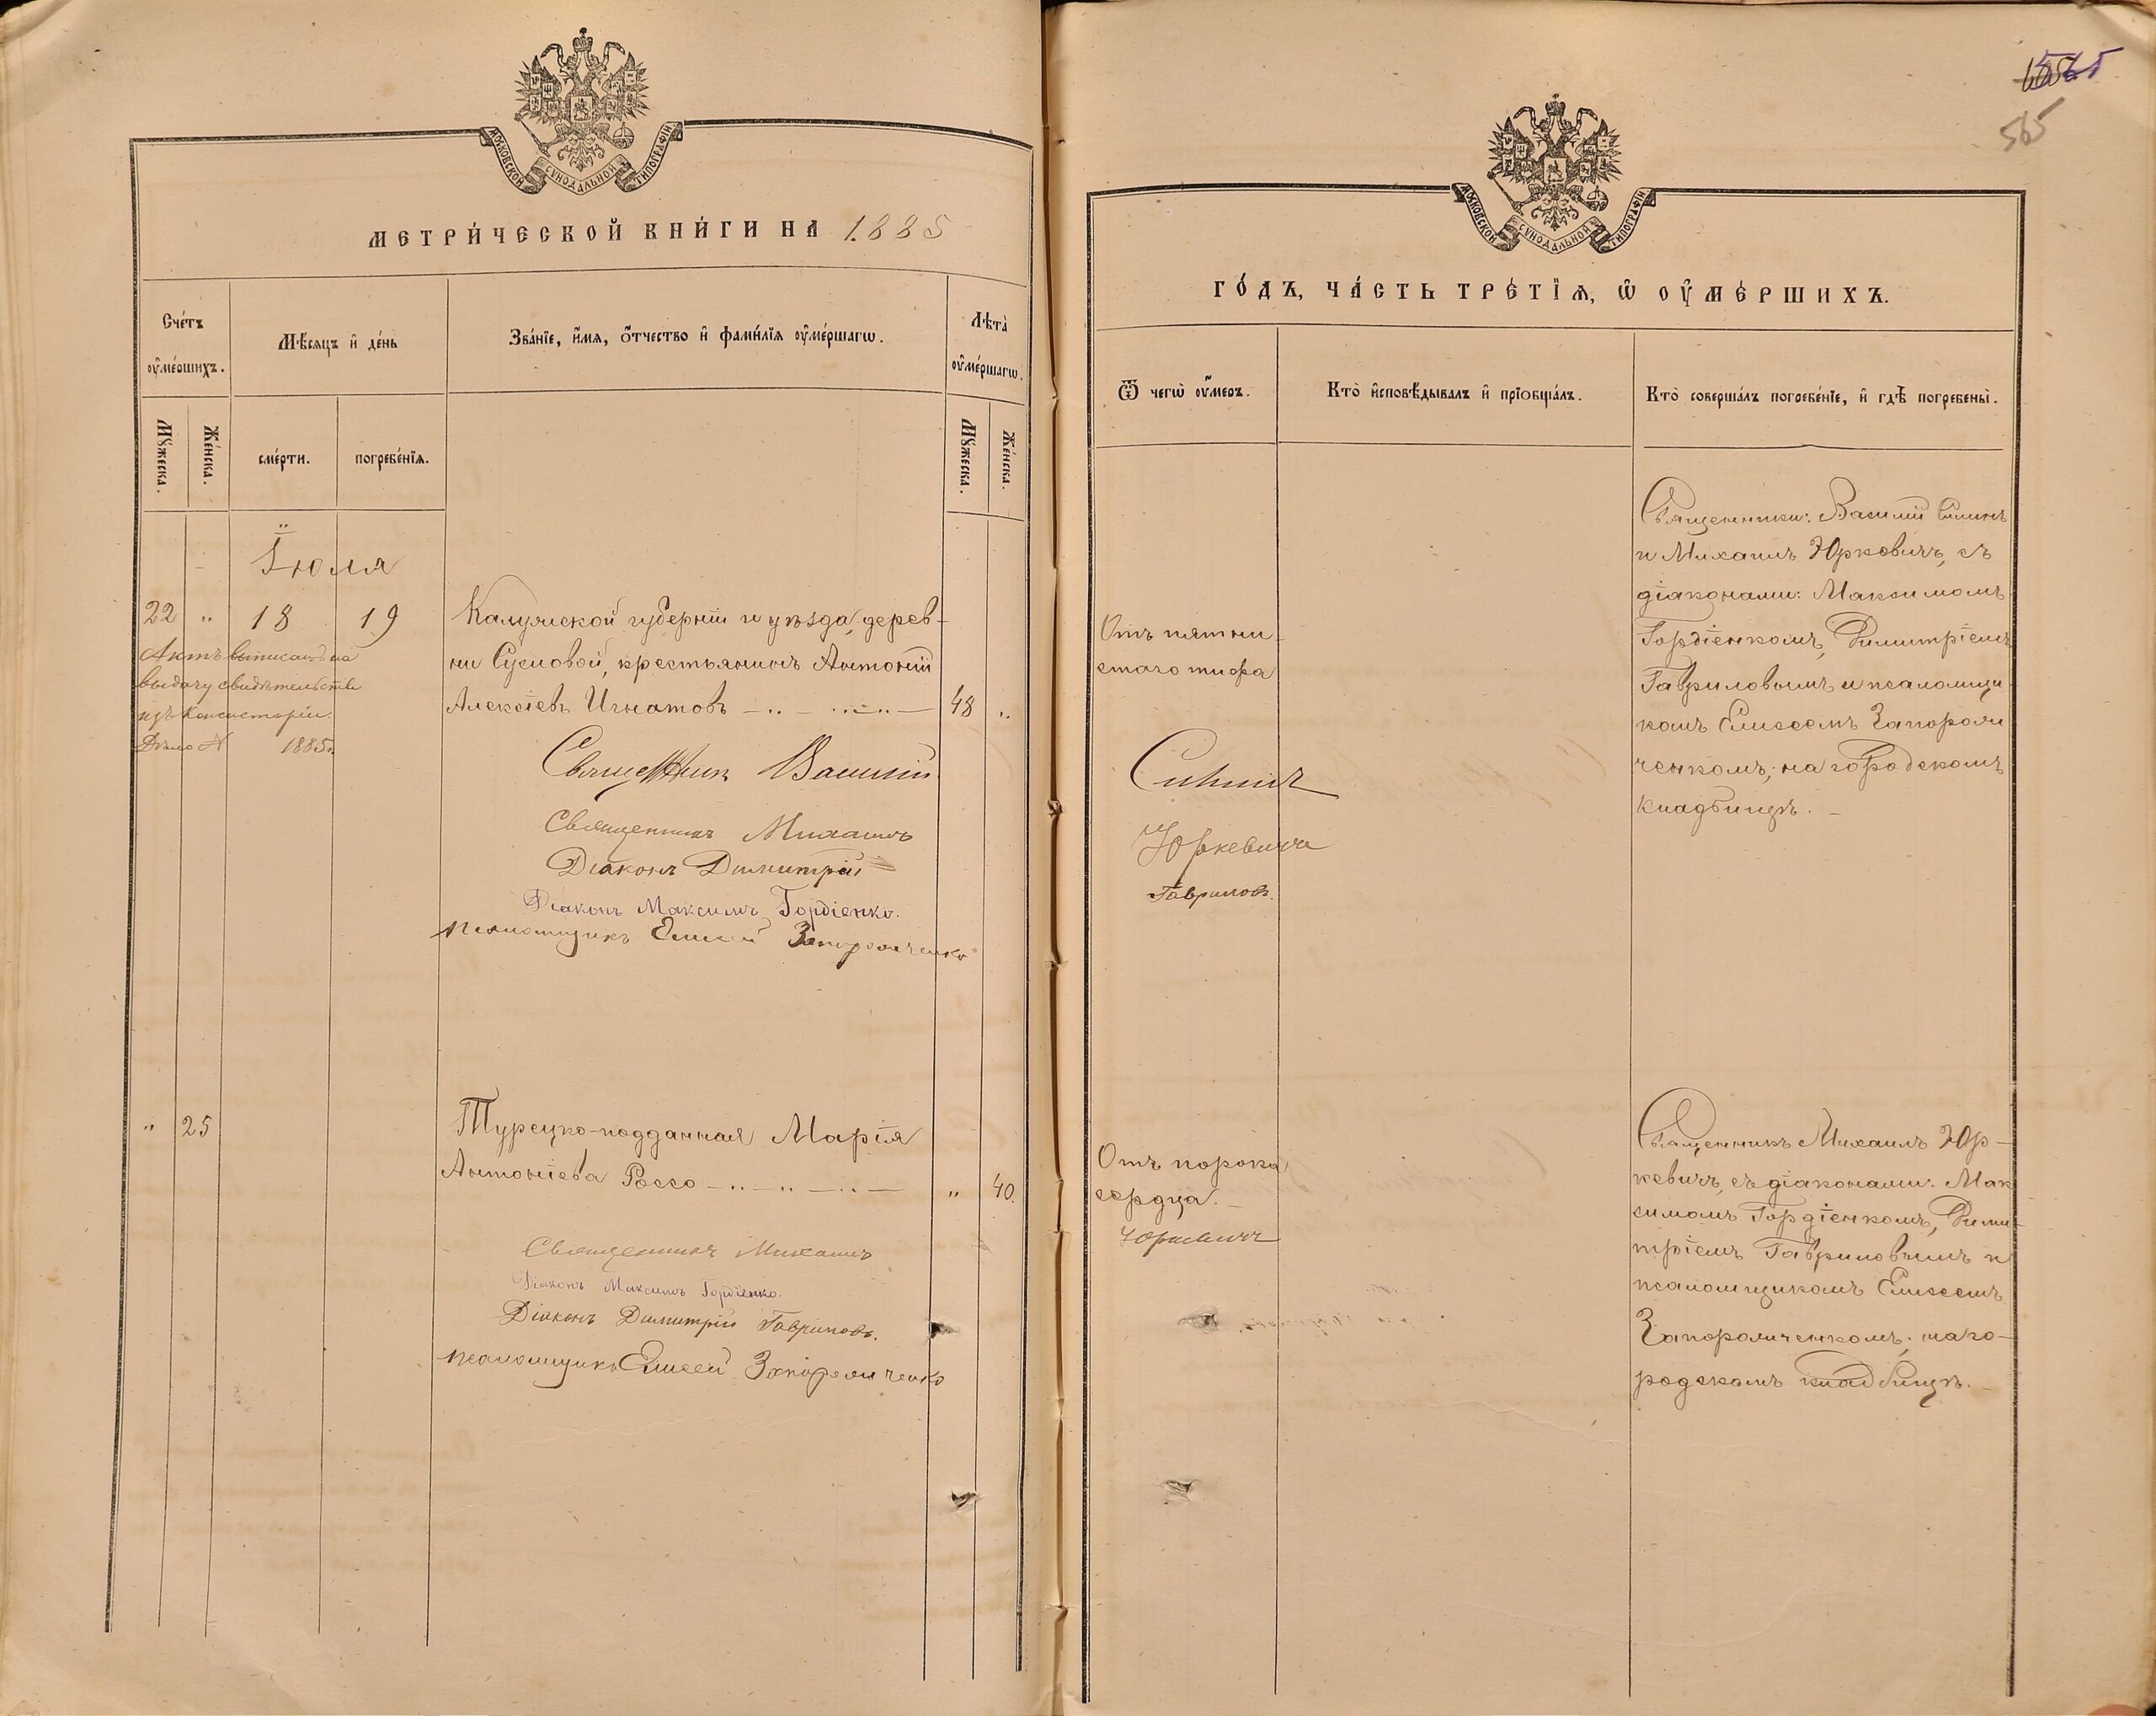 МОСКОВСКОЙ СѴНОДАЛЬНОЙ ТИПОГРАФІИ
МЕТРИ́ЧЕСКОЙ КНИ́ГИ НА 1885
Сче́тъ
ᲂу҆ме́ршихъ.
Мѣ́сяцъ и҆ де́нь
Зва́нїе, и҆́мѧ, ѻ҆́тчество и҆ фами́лїѧ ᲂу҆ме́ршагѡ.
Лѣ́та
ᲂу҆ме́ршагѡ.
Мꙋ́жеска.
Же́нска.
сме́рти.
погребе́нїѧ.
Мꙋ́жеска.
Же́нска.
Іюля
22 " 18 19 Калужской губерніи и уѣзда, дерев-
ни Сусловой, крестьянинъ Антоній
Алексіевъ Игнатовъ 48 "
Актъ выписанъ на
выдачу свидѣтельства
изъ Консисторіи.
Дѣло № 1885г.
Священникъ Василій
Священникъ Михаилъ
Діаконъ Димитрій
Діаконъ Максимъ Гордіенко.
псаломщикъ Елисей Запорожченко
" 25 Турецко-подданная Марія
Антоніева Россо " 40.
Священникъ Михаилъ
Діаконъ Максимъ Гордіенко.
Діаконъ Димитрій Гавриловъ.
псаломщикъ Елисей Запорожченко
565
565
МОСКОВСКОЙ СѴНОДАЛЬНОЙ ТИПОГРАФІИ
ГО́ДЪ, ЧА́СТЬ ТРЕ́ТЇѦ, Ѡ҆ ОУ҆МЕ́РШИХЪ.
Ѿ чегѡ̀ ᲂу҆́меръ.
Кто̀ и҆сповѣ́дывалъ и҆ прїобща́лъ.
Кто̀ соверша́лъ погребе́нїе, и҆ гдѣ̀ погребены̀.
Отъ пятни-
стаго тифа
Юркевичъ
Гавриловъ.
Священники: Василій
и Михаилъ Юркевичъ, съ
діаконами: Максимомъ
Гордіенкомъ, Димитріемъ
Гавриловымъ и псаломщи-
комъ Елисеемъ Запорож-
ченкомъ; на городскомъ
кладбищѣ.
Отъ порока
сердца.
Юркевичъ
Священникъ Михаилъ Юр-
кевичъ, съ діаконами: Мак
симомъ Гордіенкомъ, Дими-
тріемъ Гавриловымъ и
псаломщикомъ Елисеемъ
Запорожченкомъ; на го-
родскомъ кладбищѣ.